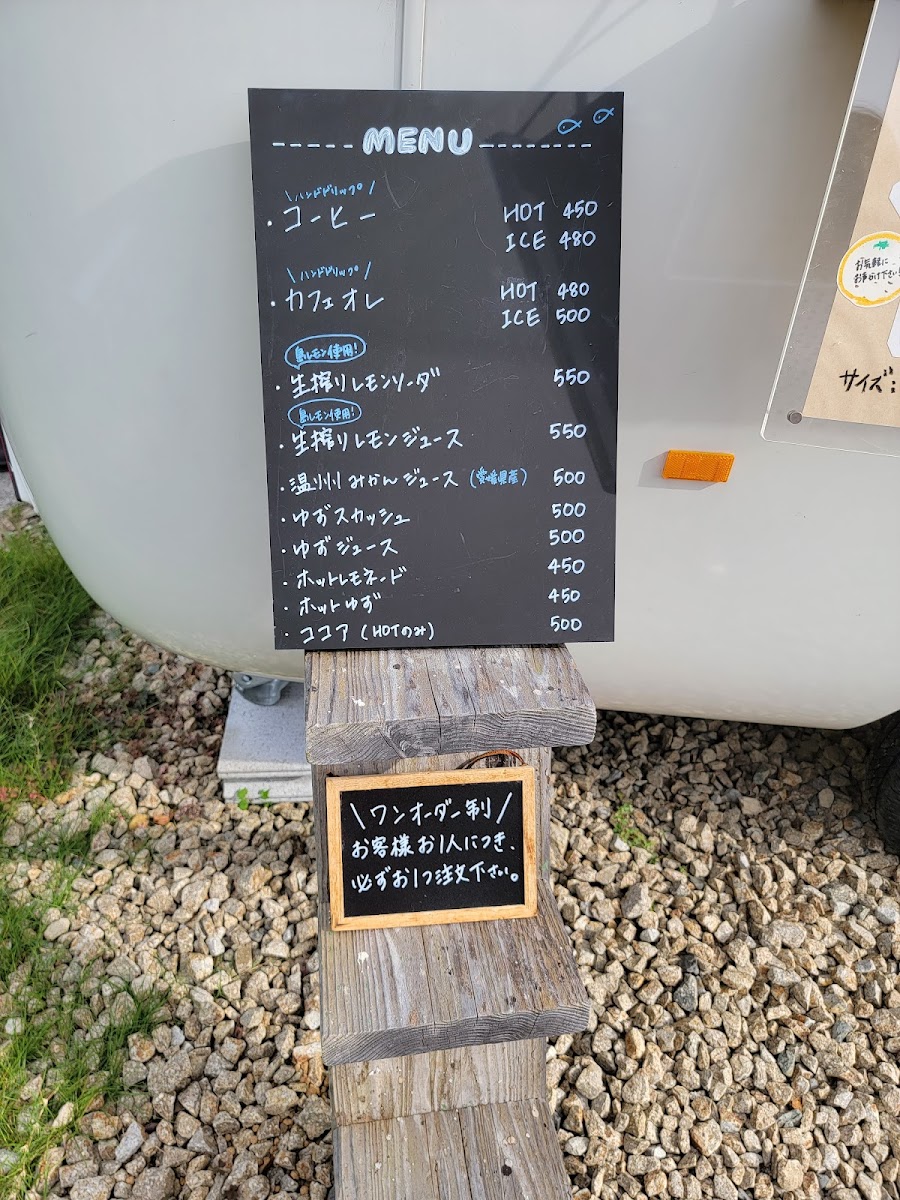 MENU
\ハンドドリップ/
・コーヒー HOT 450
ICE 480
\ハンドドリップ/
・カフェオレ HOT 480
ICE 500
島レモン使用!
・生搾りレモンソーダ 550
島レモン使用!
・生搾りレモンジュース 550
・温州みかんジュース(愛媛県産) 500
・ゆずスカッシュ 500
・ゆずジュース 500
・ホットレモネード 450
・ホットゆず 450
・ココア(HOTのみ) 500
\ワンオーダー制/
お客様お1人につき、
必ずお1つ注文下さい。
お気軽に
お声がけ下さい!
サイズ: